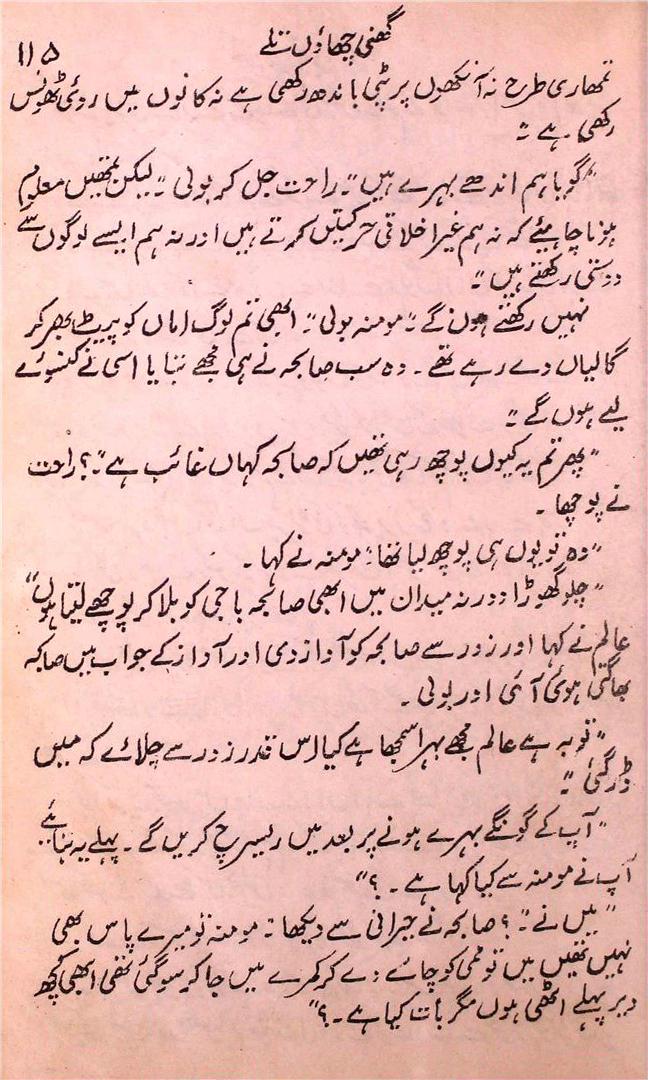 گھنی چھاؤں تلے
۱۱۵
تمھاری طرح نہ آنکھوں پر پٹی باندھ رکھی ہے نہ کانوں میں روئی ٹھونس
رکھی ہے ۔"
"گویا ہم اندھے بہرے ہیں"۔ راحت جل کر بولی "۔ لیکن تمھیں معلوم
ہونا چاہیئے کہ نہ ہم غیر اخلاقی حرکتیں کرتے ہیں اور نہ ہم ایسے لوگوں سے
دوستی رکھتے ہیں ۔"
نہیں رکھتے ہوں گے "۔ مومنہ بولی "۔ ابھی تم لوگ اماں کو پیٹ بھر کر
گالیاں دے رہے تھے ۔ وہ سب صابحہ نے ہی مجھے بتایا اسی نے کنسوئے
لیے ہوں گے ۔"
"پھر تم یہ کیوں پوچھ رہی تھیں کہ صابحہ کہاں غائب ہے"۔؟ راحت
نے پوچھا ۔
"وہ تو یوں ہی پوچھ لیا تھا" مومنہ نے کہا ۔
"چلو گھوڑا دور نہ میدان میں ابھی صابحہ باجی کو بلا کر پوچھے لیتا ہوں"
عالم نے کہا اور زور سے صابحہ کو آواز دی اور آواز کے جواب میں صابحہ
بھاگی ہوئی آئی اور بولی ۔
"توبہ ہے عالم مجھے بہرا سمجھا ہے کیا اس قدر زور سے چلائے کہ میں
ڈر گئی ۔"
"آپ کے گونگے بہرے ہونے پر بعد میں ریسرچ کریں گے ۔ پہلے یہ بتائیے
آپ نے مومنہ سے کیا کہا ہے ۔؟"
"میں نے"۔؟ صابحہ نے حیرانی سے دیکھا "۔ مومنہ تو میرے پاس بھی
نہیں تھیں میں تو ممی کو چائے دے کر کمرے میں جا کر سو گئی تھی ابھی کچھ
دیر پہلے اٹھی ہوں مگر بات کیا ہے ۔؟"